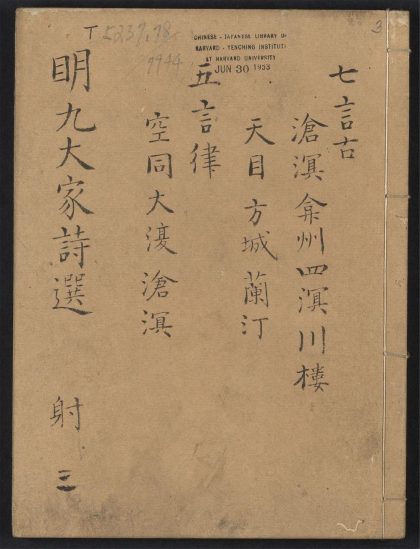 3
CHINESE - JAPANESE LIBRARY OF
HARVARD - YENCHING INSTITUTE
AT HARVARD UNIVERSITY
JUN 30 1933
T 5237.78
7944
七言古
滄溟 弇州 四溟 川樓
天目 方城 蘭汀
五言律
空同 大復 滄溟
明九大家詩選 射 三